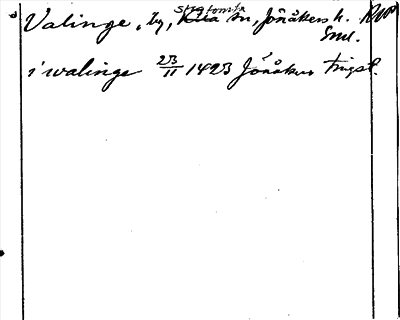 Valinge, by, Stigtomta sn, Jönåkers h.
Sml.
i walinge 23/11 1423 Jönåkers tingst.